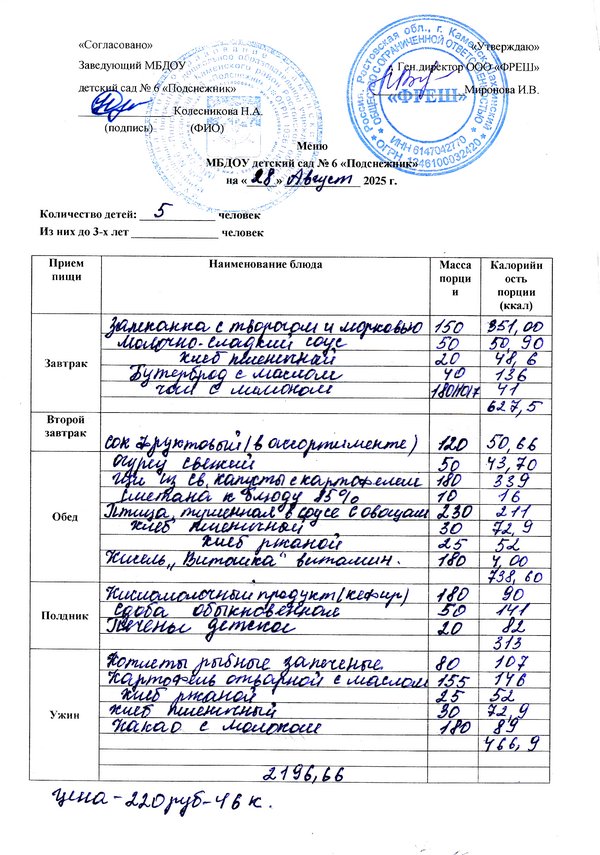 «Согласовано» «Утверждаю»
Заведующий МБДОУ Ген.директор ООО «ФРЕШ»
детский сад № 6 «Подснежник» Миронова И.В.
Колесникова Н.А.
(подпись) (ФИО)
Россия, Ростовская обл., г. Каменск-Шахтинский
ОБЩЕСТВО С ОГРАНИЧЕННОЙ ОТВЕТСТВЕННОСТЬЮ
«ФРЕШ»
ИНН 6147042770
ОГРН 1246100032420
Меню
МБДОУ детский сад № 6 «Подснежник»
на « 28 » Август 2025 г.
Количество детей: 5 человек
Из них до 3-х лет человек
Прием пищи Наименование блюда Масса порции Калорийность порции (ккал)
Завтрак
Запеканка с творогом и морковью 150 351,00
Молочно-сладкий соус 50 50,90
хлеб пшеничный 20 48,6
Бутерброд с маслом 40 136
чай с молоком 180/10/7 41
627,5
Второй завтрак
сок фруктовый (в ассортименте) 120 50,66
Обед
огурец свежий 50 43,70
щи из св. капусты с картофелем 180 339
Сметана к блюду 15% 10 16
Птица, тушенная в соусе с овощами 230 211
хлеб пшеничный 30 72,9
хлеб ржаной 25 52
Кисель „Витошка" витамин. 180 4,00
738,60
Полдник
Кисломолочный продукт (кефир) 180 90
Сдоба обыкновенная 50 141
Печенье детское 20 82
313
Ужин
Котлеты рыбные запеченые 80 107
Картофель отварной с маслом 155 146
хлеб ржаной 25 52
хлеб пшеничный 30 72,9
Какао с молоком 180 89
466,9
2196,66
цена - 220 руб - 46 к.